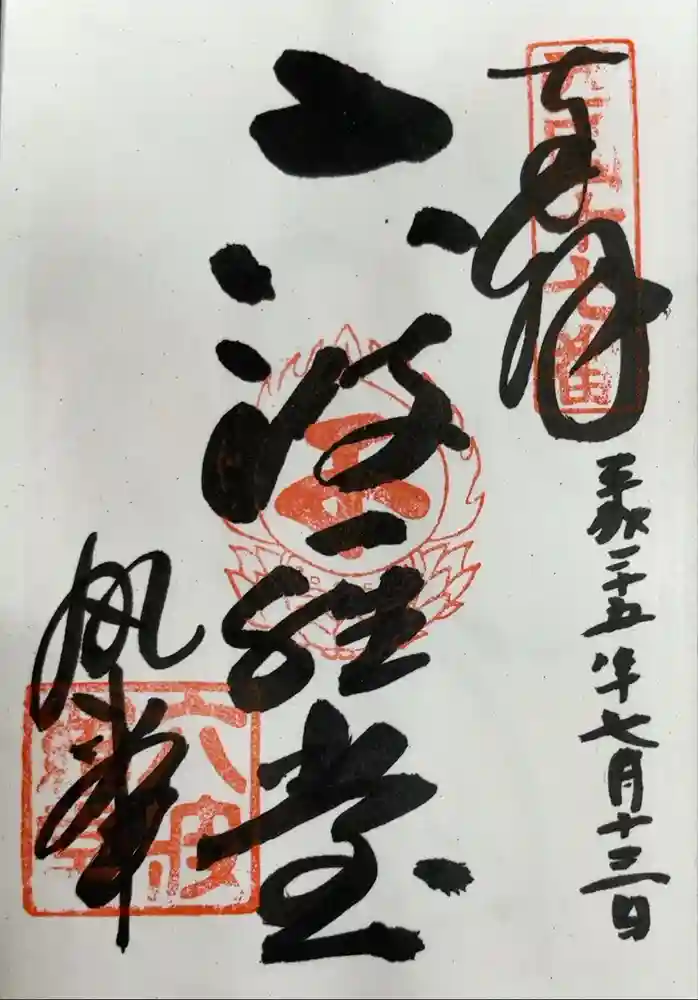 奉拝
西国十七番
平成二十五年七月十三日
六波羅堂
六波羅蜜寺